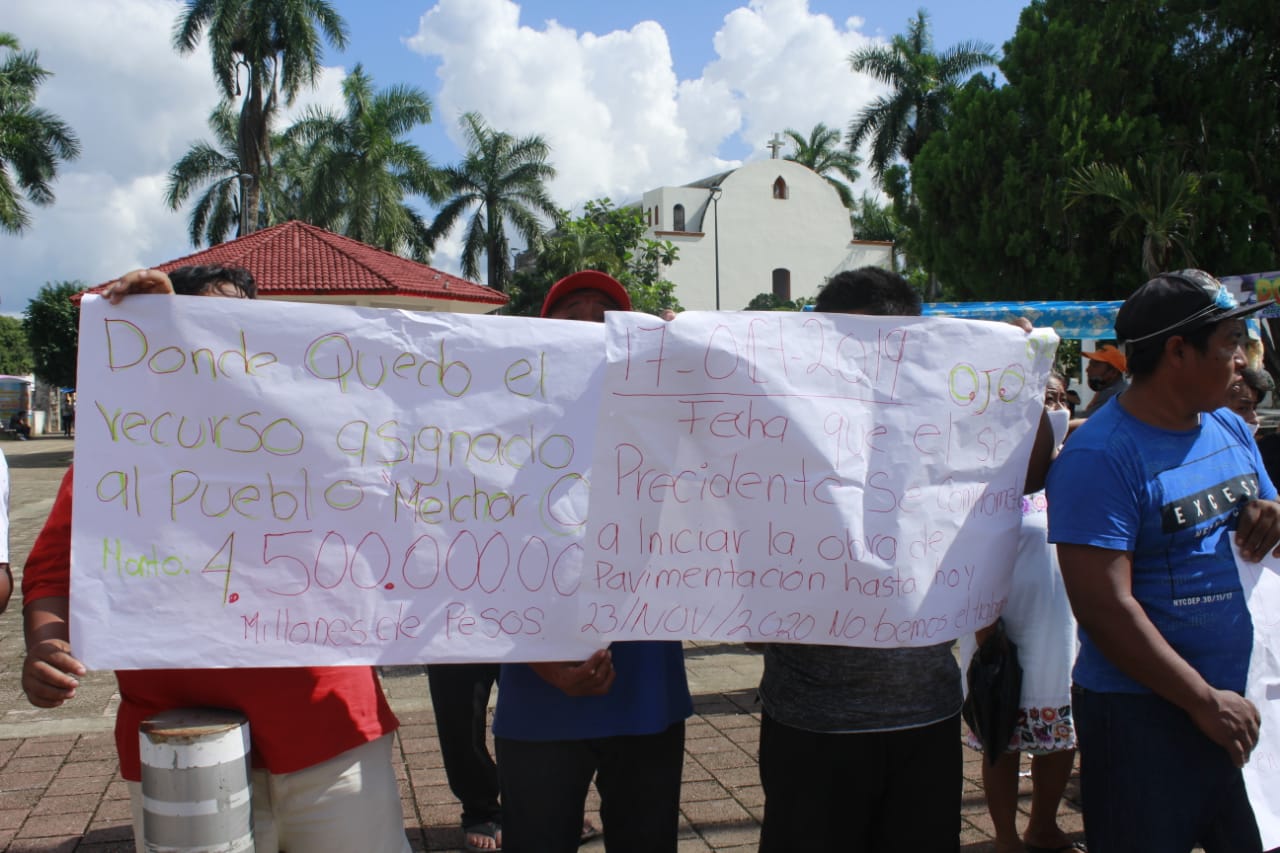 Donde Quedo el
recurso asignado
al Pueblo "Melchor O
Monto: 4.500.000.00
Millones de Pesos.
17-OCt-2019
O.J.O
Fecha que el sr
Precidente se Compromete
a Iniciar la obra de
Pavimentación hasta hoy
23/NOV/2020 No bemos el
EXCESS
NYCDEP.30/11/17